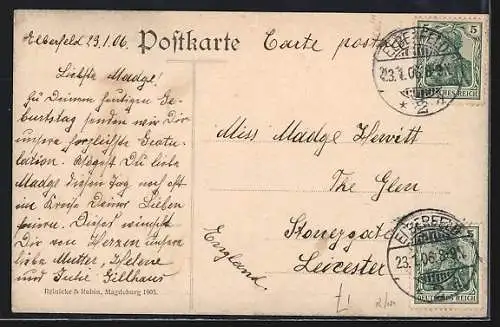 Elberfeld 23.1.06.
Postkarte
Carte postale
Liebste Madge!
Zu Deinem heutigen Ge-
burtstag senden wir Dir
unsere herzlichste Gratu-
lation. Mögest Du liebe
Madge diesen Tag noch oft
im Kreise Deiner Lieben
feiern. Dieses wünscht
Dir von Herzen unsere
liebe Mutter, Helene
und Julie Gillhaus
Reinicke & Rubin, Magdeburg 1905.
Miss Madge Hewitt
The Glen
Stoneygate
Leicester
England.
5
ELBERFELD
23.1.06.8-9
* 2
DEUTSCHES REICH
5
ELBERFELD
23.1.06.8-9
DEUTSCHES REICH